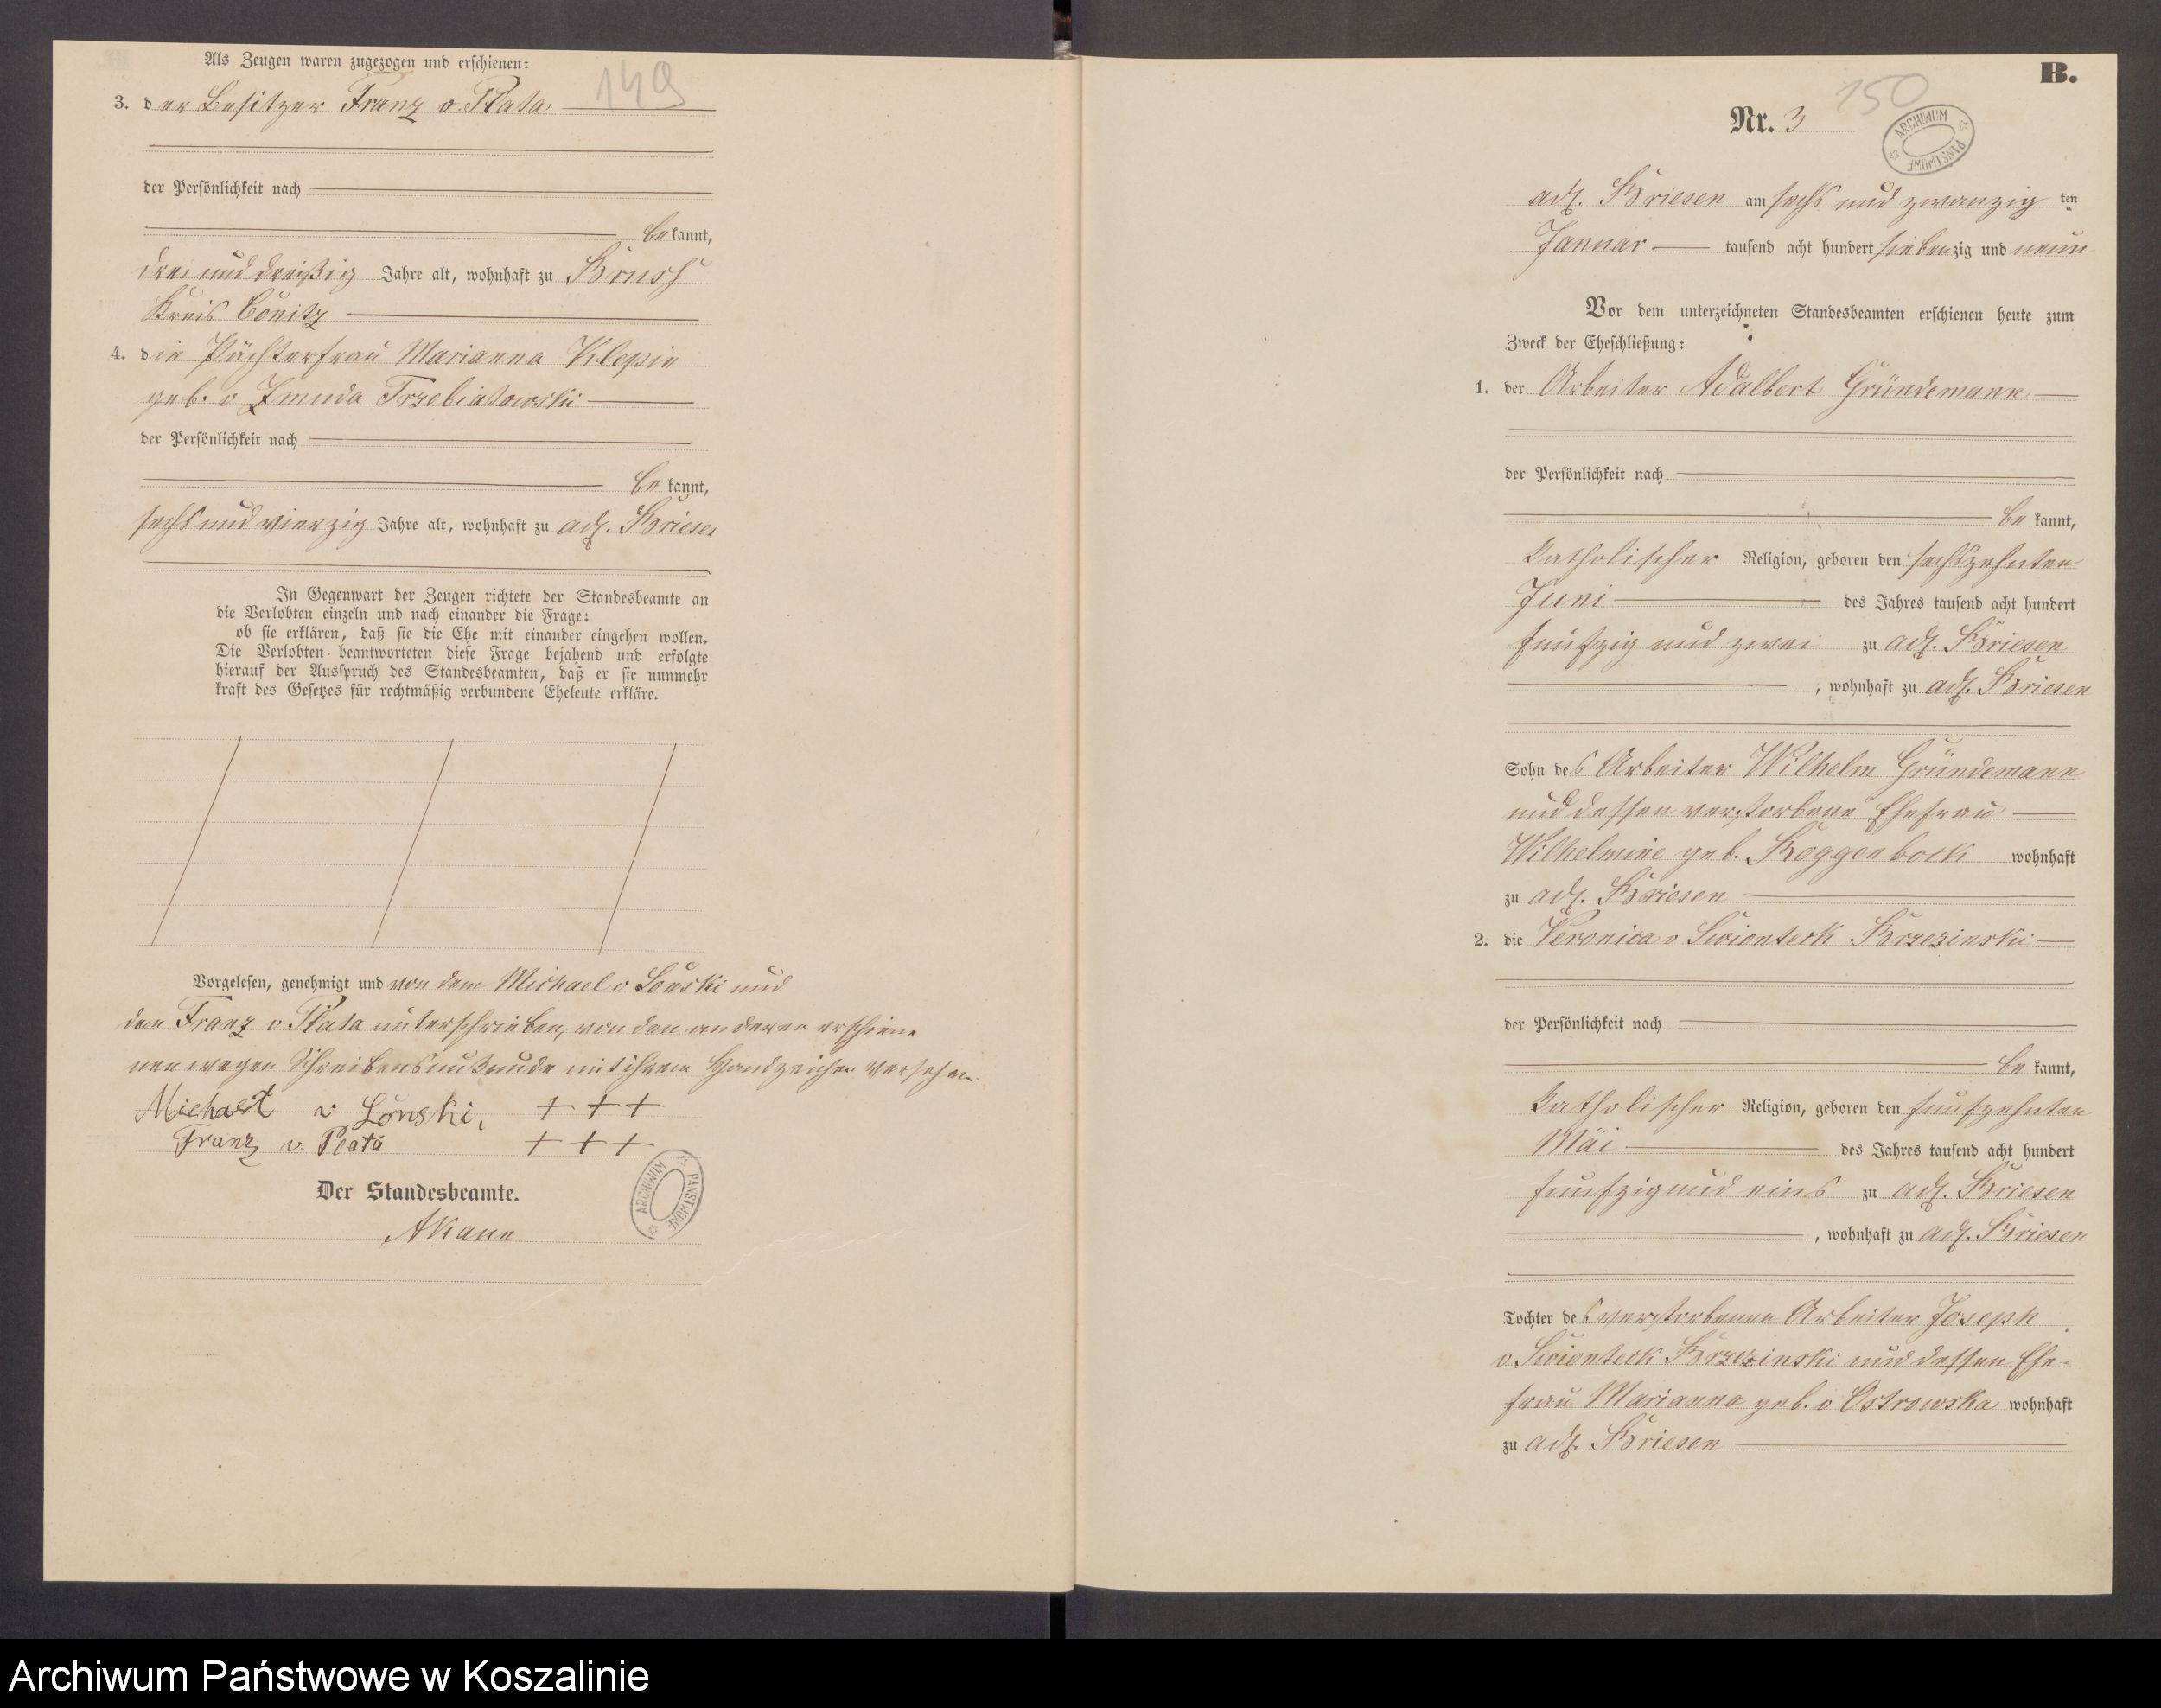 Als Zeugen waren zugezogen und erschienen:
149
3. der Besitzer Franz v. Plata
der Persönlichkeit nach
be kannt,
drei und dreißig Jahre alt, wohnhaft zu Bruss
Kreis Conitz
4. die Pächterfrau Marianna Klopin
geb. v Zmuda Trzebiatowski
der Persönlichkeit nach
be kannt,
sechs und vierzig Jahre alt, wohnhaft zu adl. Briesen
In Gegenwart der Zeugen richtete der Standesbeamte an
die Verlobten einzeln und nach einander die Frage:
ob sie erklären, daß sie die Ehe mit einander eingehen wollen.
Die Verlobten beantworteten diese Frage bejahend und erfolgte
hierauf der Ausspruch des Standesbeamten, daß er sie nunmehr
kraft des Gesetzes für rechtmäßig verbundene Eheleute erkläre.
Vorgelesen, genehmigt und von dem Michael v Lonski und
dem Franz v Plata unterschrieben, von den anderen erschiene
nen wegen Schreibensunkunde mit ihrem Handzeichen versehen
Michael v Lonski, + + +
Franz v. Plata + + +
ARCHIWUM PAŃSTWOWE
Der Standesbeamte.
AKann
B.
150
Nr. 3
ARCHIWUM PAŃSTWOWE
adl. Briesen am sechs und zwanzig ten
Januar tausend acht hundert siebenzig und neun
Vor dem unterzeichneten Standesbeamten erschienen heute zum
Zweck der Eheschließung:
1. der Arbeiter Adalbert Gründemann
der Persönlichkeit nach
be kannt,
katholischer Religion, geboren den sechszehnten
Juni des Jahres tausend acht hundert
funfzig und zwei zu adl. Briesen
, wohnhaft zu adl. Briesen
Sohn des Arbeiter Wilhelm Gründemann
und dessen verstorbene Ehefrau
Wilhelmine geb. Roggenbock wohnhaft
zu adl. Briesen
2. die Veronica v Swienteck Brzezinski
der Persönlichkeit nach
be kannt,
katholischer Religion, geboren den funfzehnten
Mai des Jahres tausend acht hundert
funfzig und eins zu adl. Briesen
, wohnhaft zu adl. Briesen
Tochter des verstorbenen Arbeiter Joseph
v Swienteck Brzezinski und dessen Ehe-
frau Marianna geb. v Ostrowska wohnhaft
zu adl. Briesen
Archiwum Państwowe w Koszalinie